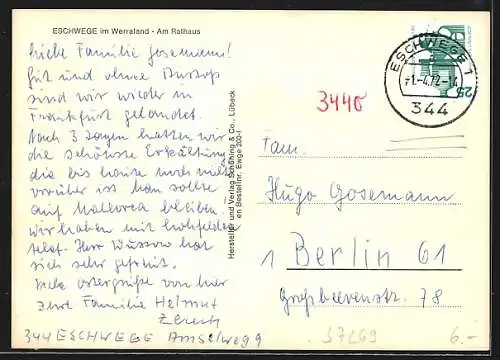 ESCHWEGE im Werraland - Am Rathaus
Liebe Familie Gosemann!
Gut und ohne
sind wir wieder in
Frankfurt gelandet.
Nach 3 Tagen hatten wir
die schönste Erkältung
die bis heute noch nicht
vorüber ist. Man sollte
auf Mallorca bleiben.
Wir haben mit
telef. Herr Wussow hat
sich sehr gefreut.
Viele Ostergrüße von hier
Ihre Familie Helmut
344 ESCHWEGE Amselweg 9
Hersteller und Verlag Schöning & Co., Lübeck
en Bestellnr. Ewge 200-1
3440
ESCHWEGE 1
-1.-4.72-14
344
25
Fam.
Hugo Gosemann
1 Berlin 61
Großbeerenstr. 78
37269
6.-